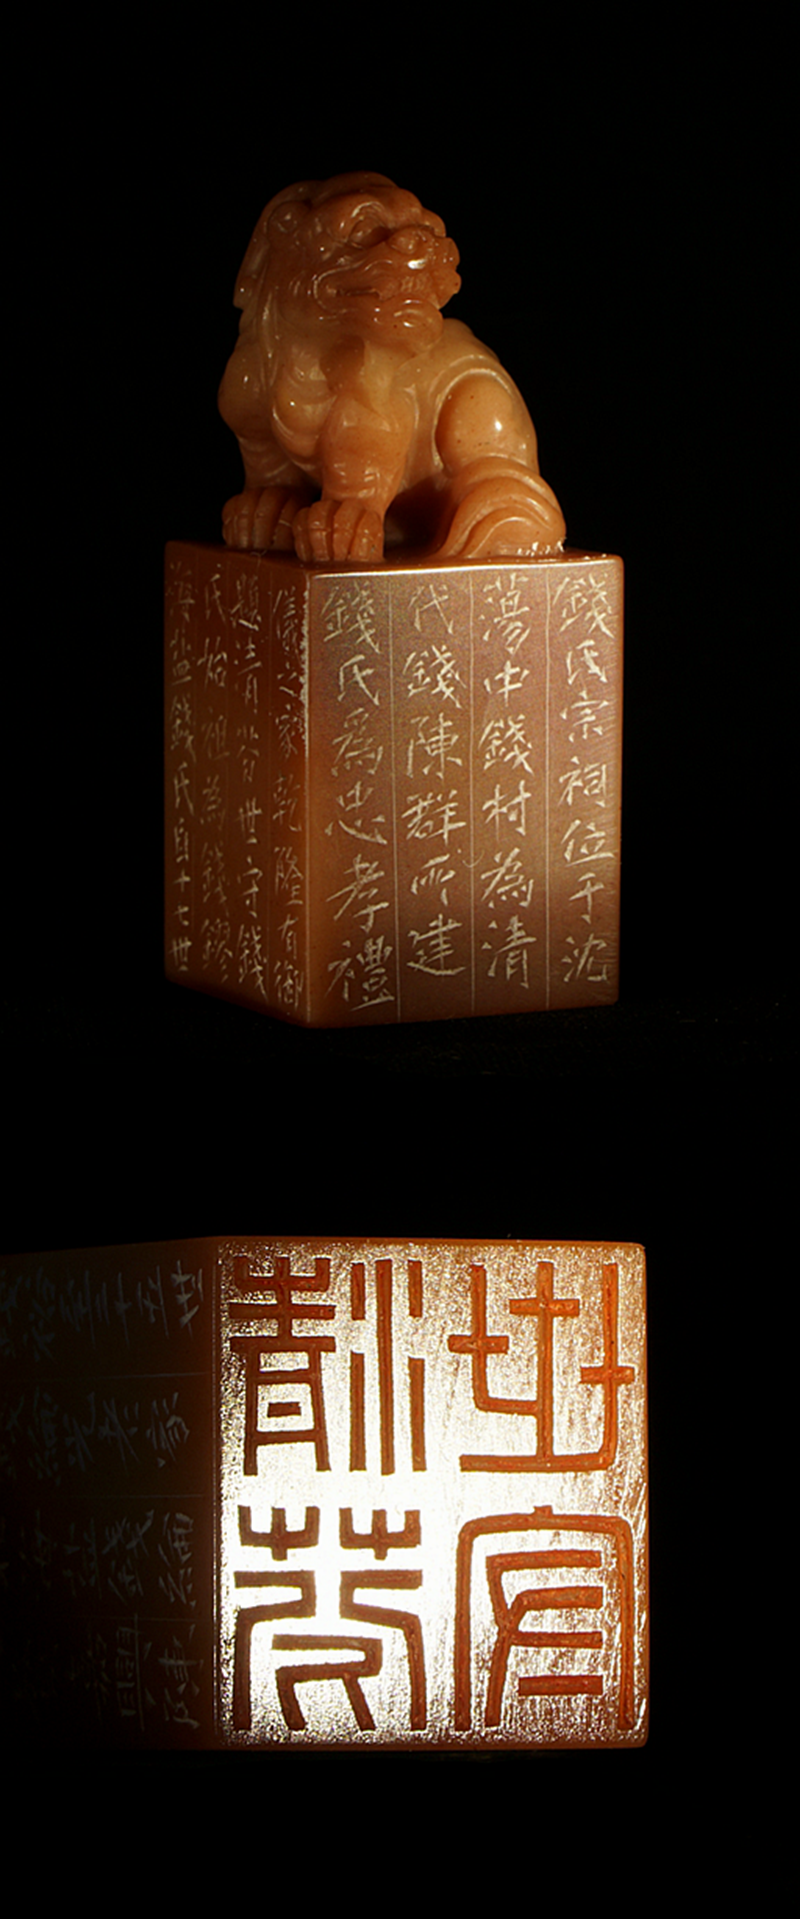 錢氏宗祠位于沈
蕩中錢村為清
代錢陳群所建
錢氏爲忠孝禮
儀之家乾隆有御
題清芬世守錢
氏始祖為錢鏐
海盐錢氏自十七世
清芬
世守